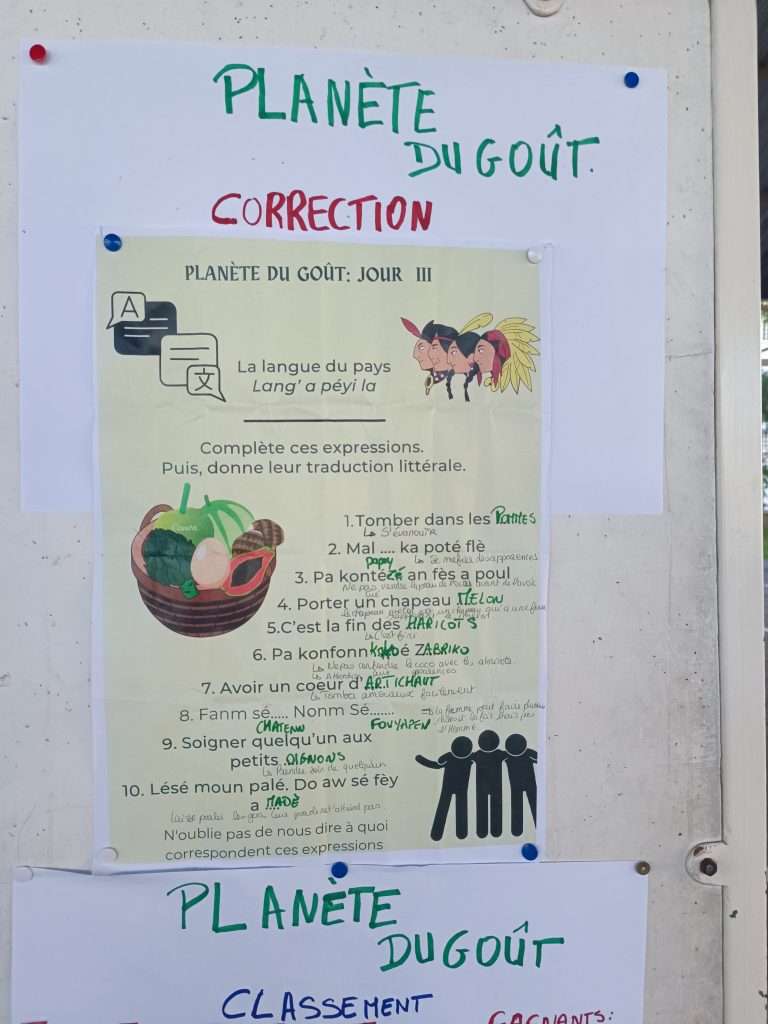 PLANÈTE
DU GOÛT.
CORRECTION
PLANÈTE DU GOÛT: JOUR III
A
文
La langue du pays
Lang' a péyi la
Complète ces expressions.
Puis, donne leur traduction littérale.
Canva
1.Tomber dans les POMMES
↳ S'évanouir
2. Mal .... ka poté flè
papay ↳ Se méfier des apparences
3. Pa konté zé an fès a poul
Ne pas vendre la peau de l'ours avant de l'avoir
tué
4. Porter un chapeau MELON
Le chapeau melon est un chapeau qui a une
5.C'est la fin des HARICOTS
↳ C'est fini
6. Pa konfonn koko é ZABRIKO
↳ Ne pas confondre le coco avec les abricots.
↳ Attention aux apparences
7. Avoir un coeur d'ARTICHAUT
↳ Tomber amoureux facilement
8. Fanm sé..... Nonm Sé.......
CHATENN FOUYAPEN
⇒ la femme peut faire
l'Homme
9. Soigner quelqu'un aux
petits OIGNONS
↳ Prendre soin de quelqu'un
10. Lésé moun palé. Do aw sé fèy
a MADÈ
Laisse parler les gens. Leur parole t'atteind pas.
N'oublie pas de nous dire à quoi
correspondent ces expressions
PLANÈTE
DU GOÛT
CLASSEMENT
GAGNANTS: